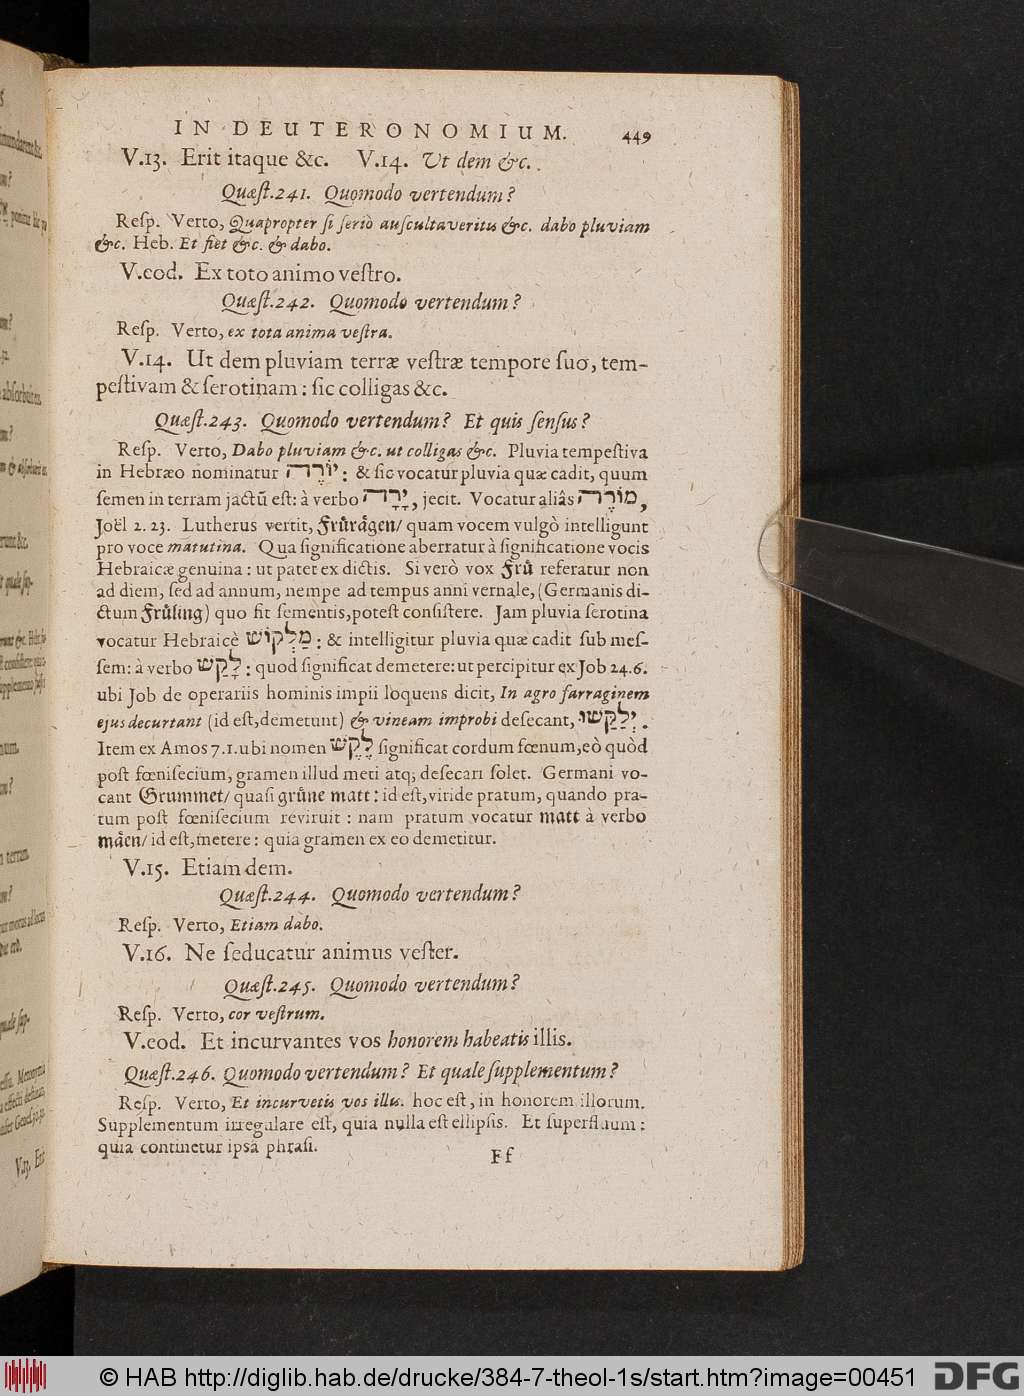 IN DEUTERONOMIUM. 449
V.13. Erit itaque &c. V.14. Ut dem &c.
Quæſt.241. Quomodo vertendum?
Reſp. Verto, Quapropter ſi ſeriò auſcultaveritis &c. dabo pluviam
&c. Heb. Et fiet &c. & dabo.
V.eod. Ex toto animo veſtro.
Quæſt.242. Quomodo vertendum?
Reſp. Verto, ex tota anima veſtra.
V.14. Ut dem pluviam terræ veſtræ tempore ſuo, tem-
peſtivam & ſerotinam: ſic colligas &c.
Quæſt.243. Quomodo vertendum? Et quis ſenſus?
Reſp. Verto, Dabo pluviam &c. ut colligas &c. Pluvia tempeſtiva
in Hebræo nominatur יוֹרֶה: & ſic vocatur pluvia quæ cadit, quum
ſemen in terram jactũ eſt: à verbo יָרָה, jecit. Vocatur aliâs מוֹרֶה,
Joël 2. 23. Lutherus vertit, Frůrågen/ quam vocem vulgò intelligunt
pro voce matutina. Qua ſignificatione aberratur à ſignificatione vocis
Hebraicæ genuina: ut patet ex dictis. Si verò vox Frů referatur non
ad diem, ſed ad annum, nempe ad tempus anni vernale, (Germanis di-
ctum Frůling) quo fit ſementis, poteſt conſiſtere. Jam pluvia ſerotina
vocatur Hebraicè מַלְקוֹשׁ: & intelligitur pluvia quæ cadit ſub meſ-
ſem: à verbo לָקַשׁ: quod ſignificat demetere: ut percipitur ex Job 24.6.
ubi Job de operariis hominis impii loquens dicit, In agro farraginem
ejus decurtant (id eſt, demetunt) & vineam improbi deſecant, יְלַקֵּשׁוּ.
Item ex Amos 7.1. ubi nomen לֶקֶשׁ ſignificat cordum fœnum, eò quòd
poſt fœniſecium, gramen illud meti atq; deſecari ſolet. Germani vo-
cant Grummet/ quaſi grůne matt: id eſt, viride pratum, quando pra-
tum poſt fœniſecium reviruit: nam pratum vocatur matt à verbo
måen/ id eſt, metere: quia gramen ex eo demetitur.
V.15. Etiam dem.
Quæſt.244. Quomodo vertendum?
Reſp. Verto, Etiam dabo.
V.16. Ne ſeducatur animus veſter.
Quæſt.245. Quomodo vertendum?
Reſp. Verto, cor veſtrum.
V.eod. Et incurvantes vos honorem habeatis illis.
Quæſt.246. Quomodo vertendum? Et quale ſupplementum?
Reſp. Verto, Et incurvetis vos illis. hoc eſt, in honorem illorum.
Supplementum irregulare eſt, quia nulla eſt ellipſis. Et ſuperfluum:
quia continetur ipsâ phraſi.
Ff
© HAB http://diglib.hab.de/drucke/384-7-theol-1s/start.htm?image=00451
DFG